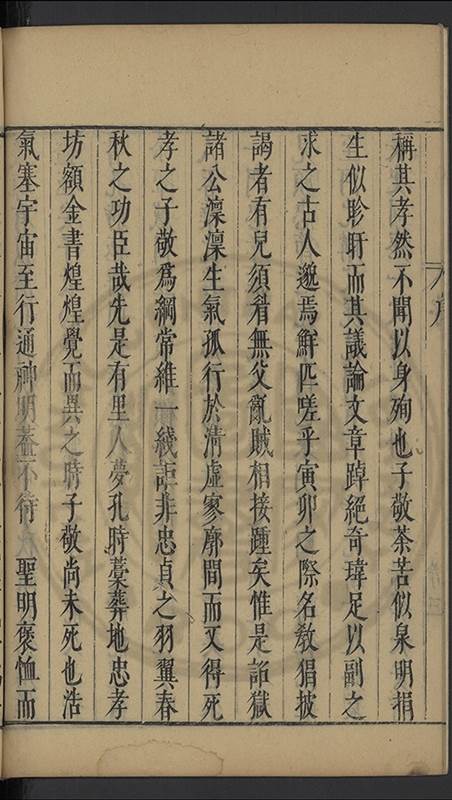 稱其孝然不聞以身殉也子敬茶苦似泉明捐
生似聆盱而其議論文章踔絕奇瑋足以副之
求之古人邈焉鮮匹嗟乎寅卯之際名教猖披
謁者有兒須眷無父亂賊相接踵矣惟是詔獄
諸公凜凜生氣孤行於清虛寥廓間而又得死
孝之子敬爲綱常維一綫詎非忠貞之羽翼春
秋之功臣哉先是有里人夢孔時藁葬地忠孝
坊額金書煌煌覺而異之時子敬尚未死也浩
氣塞宇宙至行通神明葢不待 聖明褒恤而